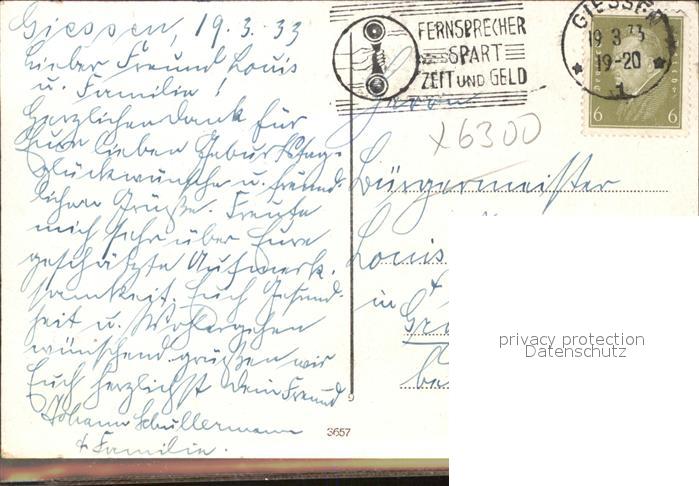 Giessen, 19.3.33
Lieber Freund Louis
u. Familie!
Herzlichen Dank für
Eure lieben Geburtstags-
glückwünsche u. freund-
lichen Grüße. Freute
mich sehr über Eure
geschätzte Aufmerk-
samkeit. Euch Gesund-
heit u. Wohlergehen
wünschend grüßen wir
Euch herzlichst Dein Freund
Johann Schullermann
& Familie.
FERNSPRECHER
SPART
ZEIT UND GELD
GIESSEN
19 3 33
19-20
1
6 6
Herrn
x6300
Bürgermeister
Louis
in
Gr
be
privacy protection
Datenschutz
9
3657